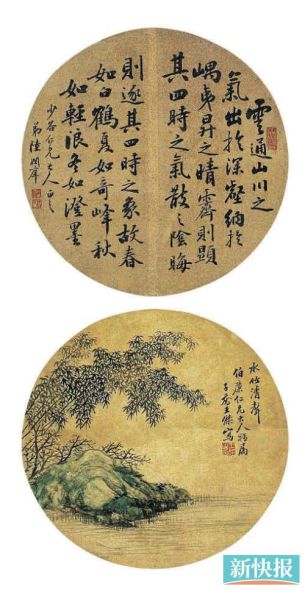 雲通山川之
氣出於深壑納於
嵎夷昇之晴霽則顯
其四時之氣散之陰晦
則逐其四時之象故春
如白鶴夏如奇峰秋
如輕浪冬如澄墨
少谷仁兄大人正之
弟陸潤庠
水竹清聲
仁兄大人屬
寫
新快报